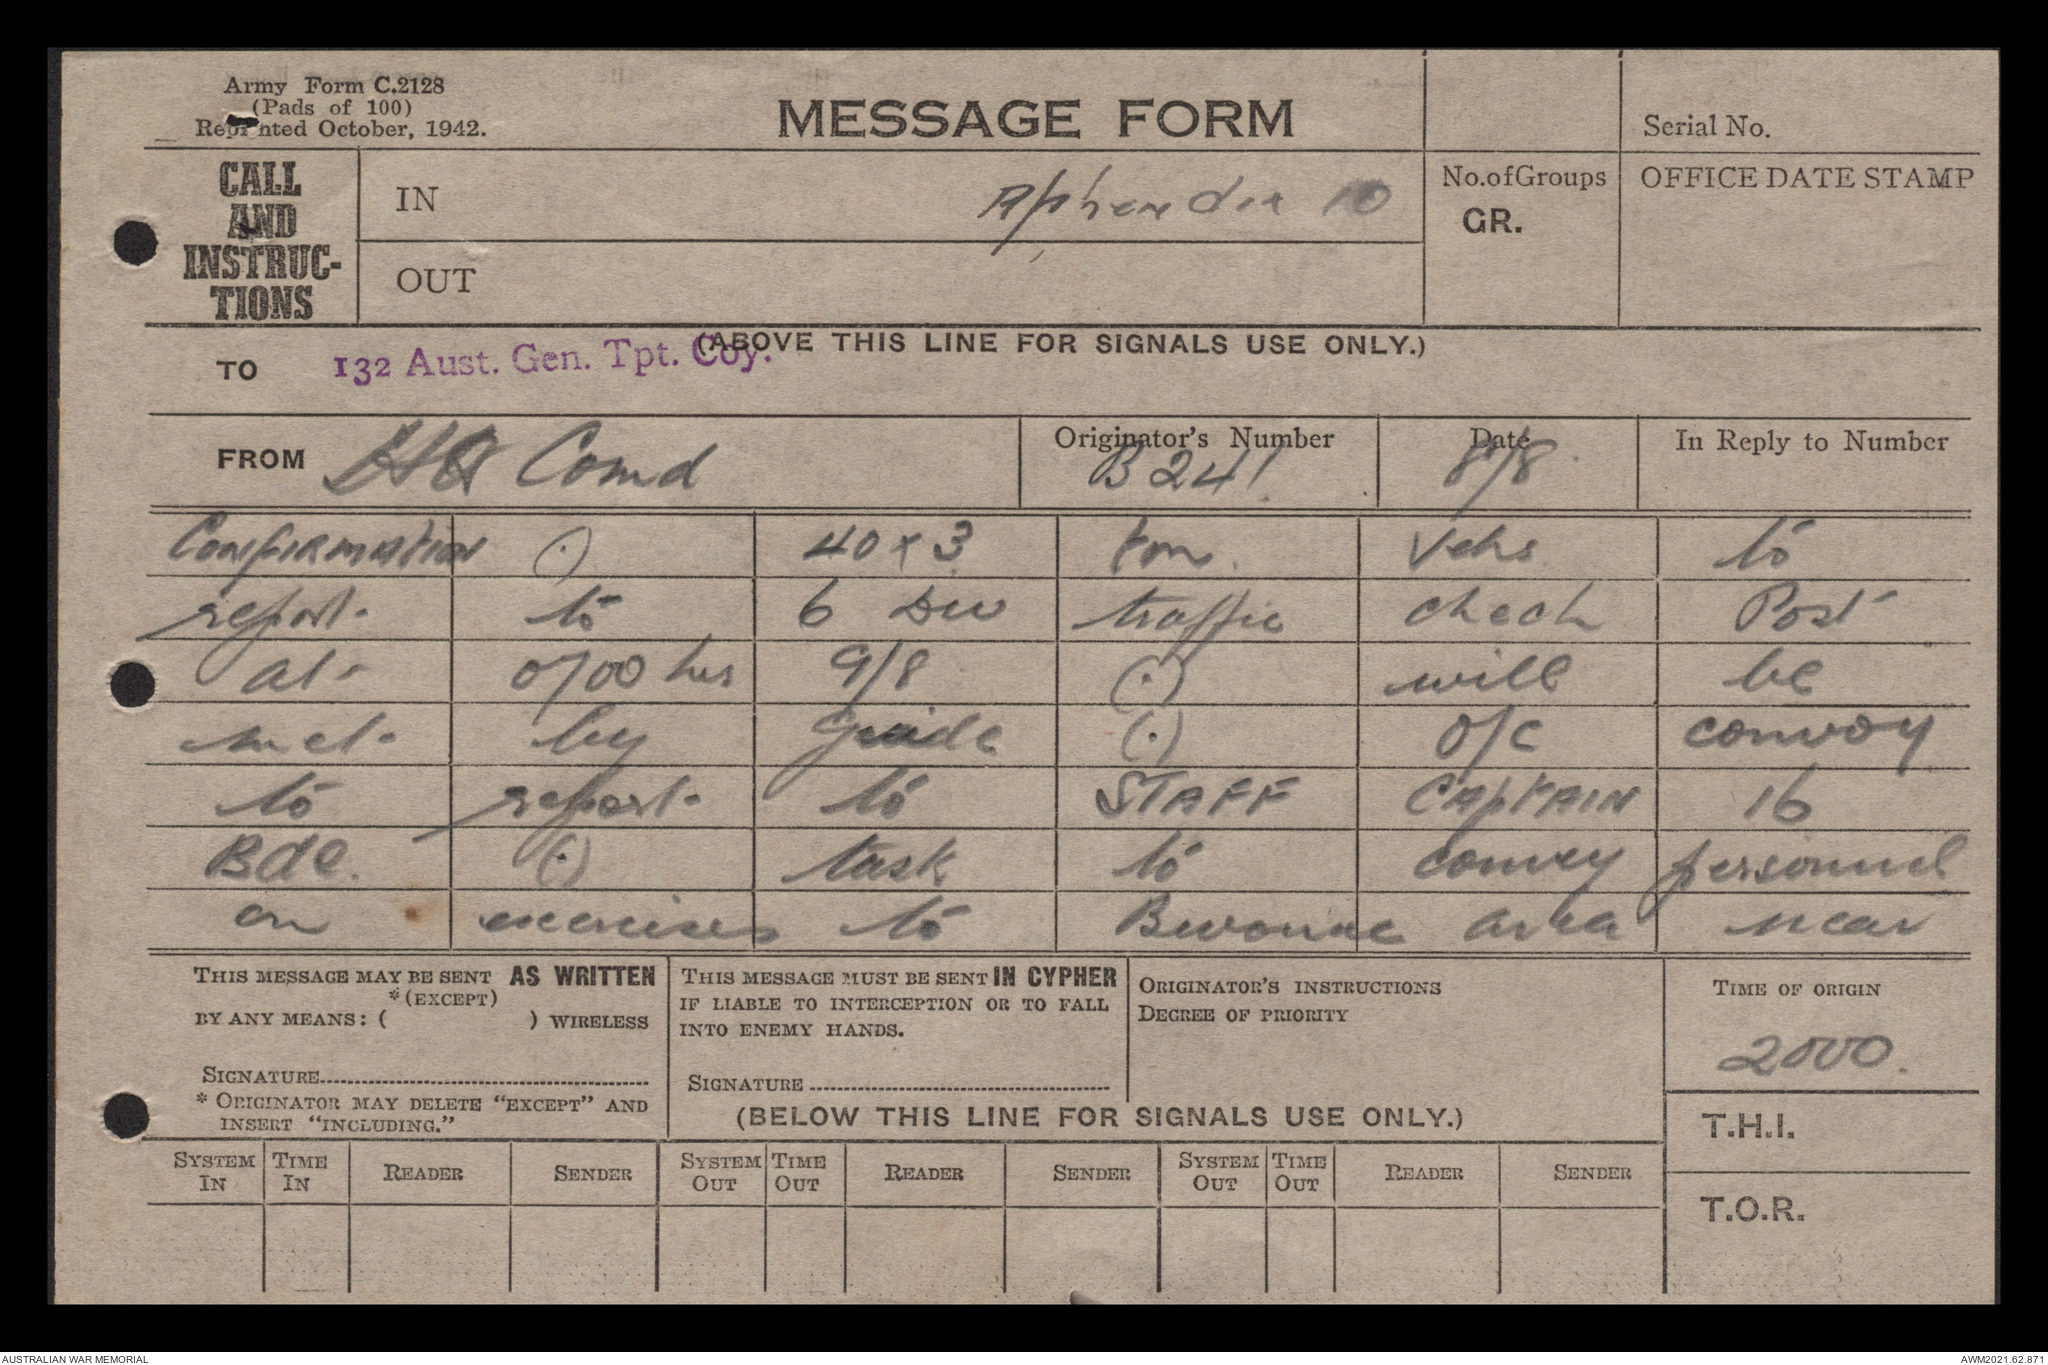 Army Form C.2128
(Pads of 100)
Reprinted October, 1942.
MESSAGE FORM
Serial No.
CALL AND INSTRUC-TIONS
IN
Appendix 10
No. of Groups
GR.
OFFICE DATE STAMP
OUT
(ABOVE THIS LINE FOR SIGNALS USE ONLY.)
TO 132 Aust. Gen. Tpt. Coy.
FROM HQ Comd
Originator's Number B241
Date 8/8
In Reply to Number
Confirmation (.) 40 x 3 ton Vehs to
report to 6 Div traffic check Post
at 0700 hrs 9/8 (.) will be
met by guide (.) O/C convoy
to report to STAFF CAPTAIN 16
Bde. (.) task to convey personnel
on exercises to Bivouac area near
THIS MESSAGE MAY BE SENT AS WRITTEN
*(EXCEPT)
BY ANY MEANS: ( ) WIRELESS
SIGNATURE
* ORIGINATOR MAY DELETE "EXCEPT" AND
INSERT "INCLUDING."
THIS MESSAGE MUST BE SENT IN CYPHER
IF LIABLE TO INTERCEPTION OR TO FALL
INTO ENEMY HANDS.
SIGNATURE
ORIGINATOR'S INSTRUCTIONS
DEGREE OF PRIORITY
TIME OF ORIGIN
2000.
(BELOW THIS LINE FOR SIGNALS USE ONLY.)
T.H.I.
SYSTEM IN TIME IN READER SENDER SYSTEM OUT TIME OUT READER SENDER SYSTEM OUT TIME OUT READER SENDER
T.O.R.
AUSTRALIAN WAR MEMORIAL
AWM2021.62.871